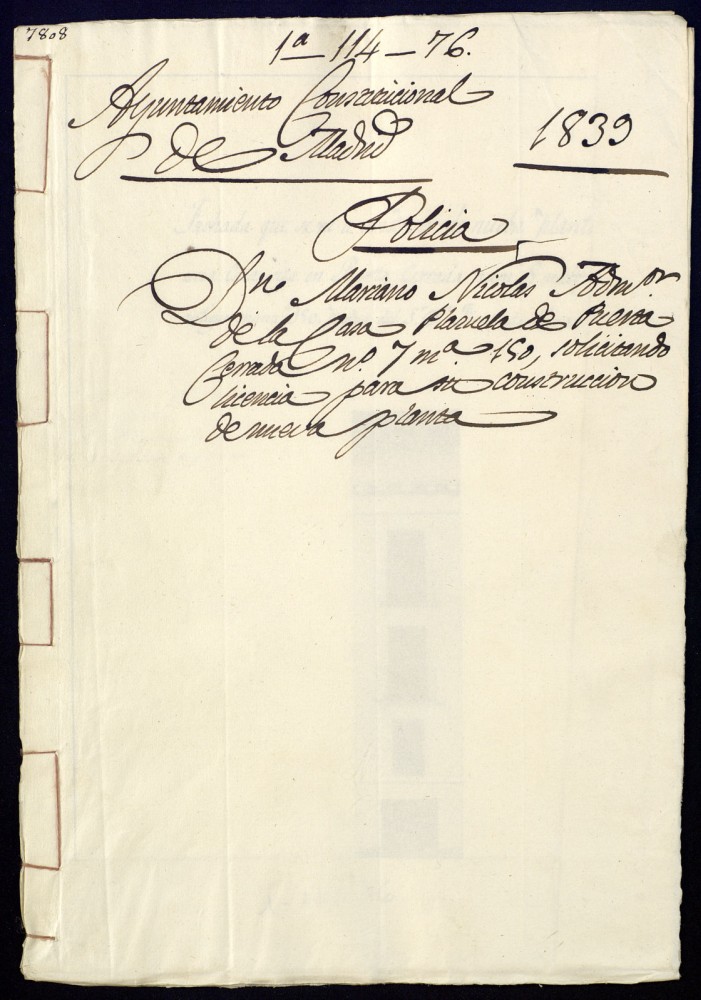 7808
1ª - 114 - 76.
Ayuntamiento Constitucional
de Madrid
1839
Policia
Dn. Mariano Nicolas Admor.
de la Casa Plazuela de Puerta
Cerrada nº. 7 mª. 150, solicitando
licencia para su construccion
de nueva planta